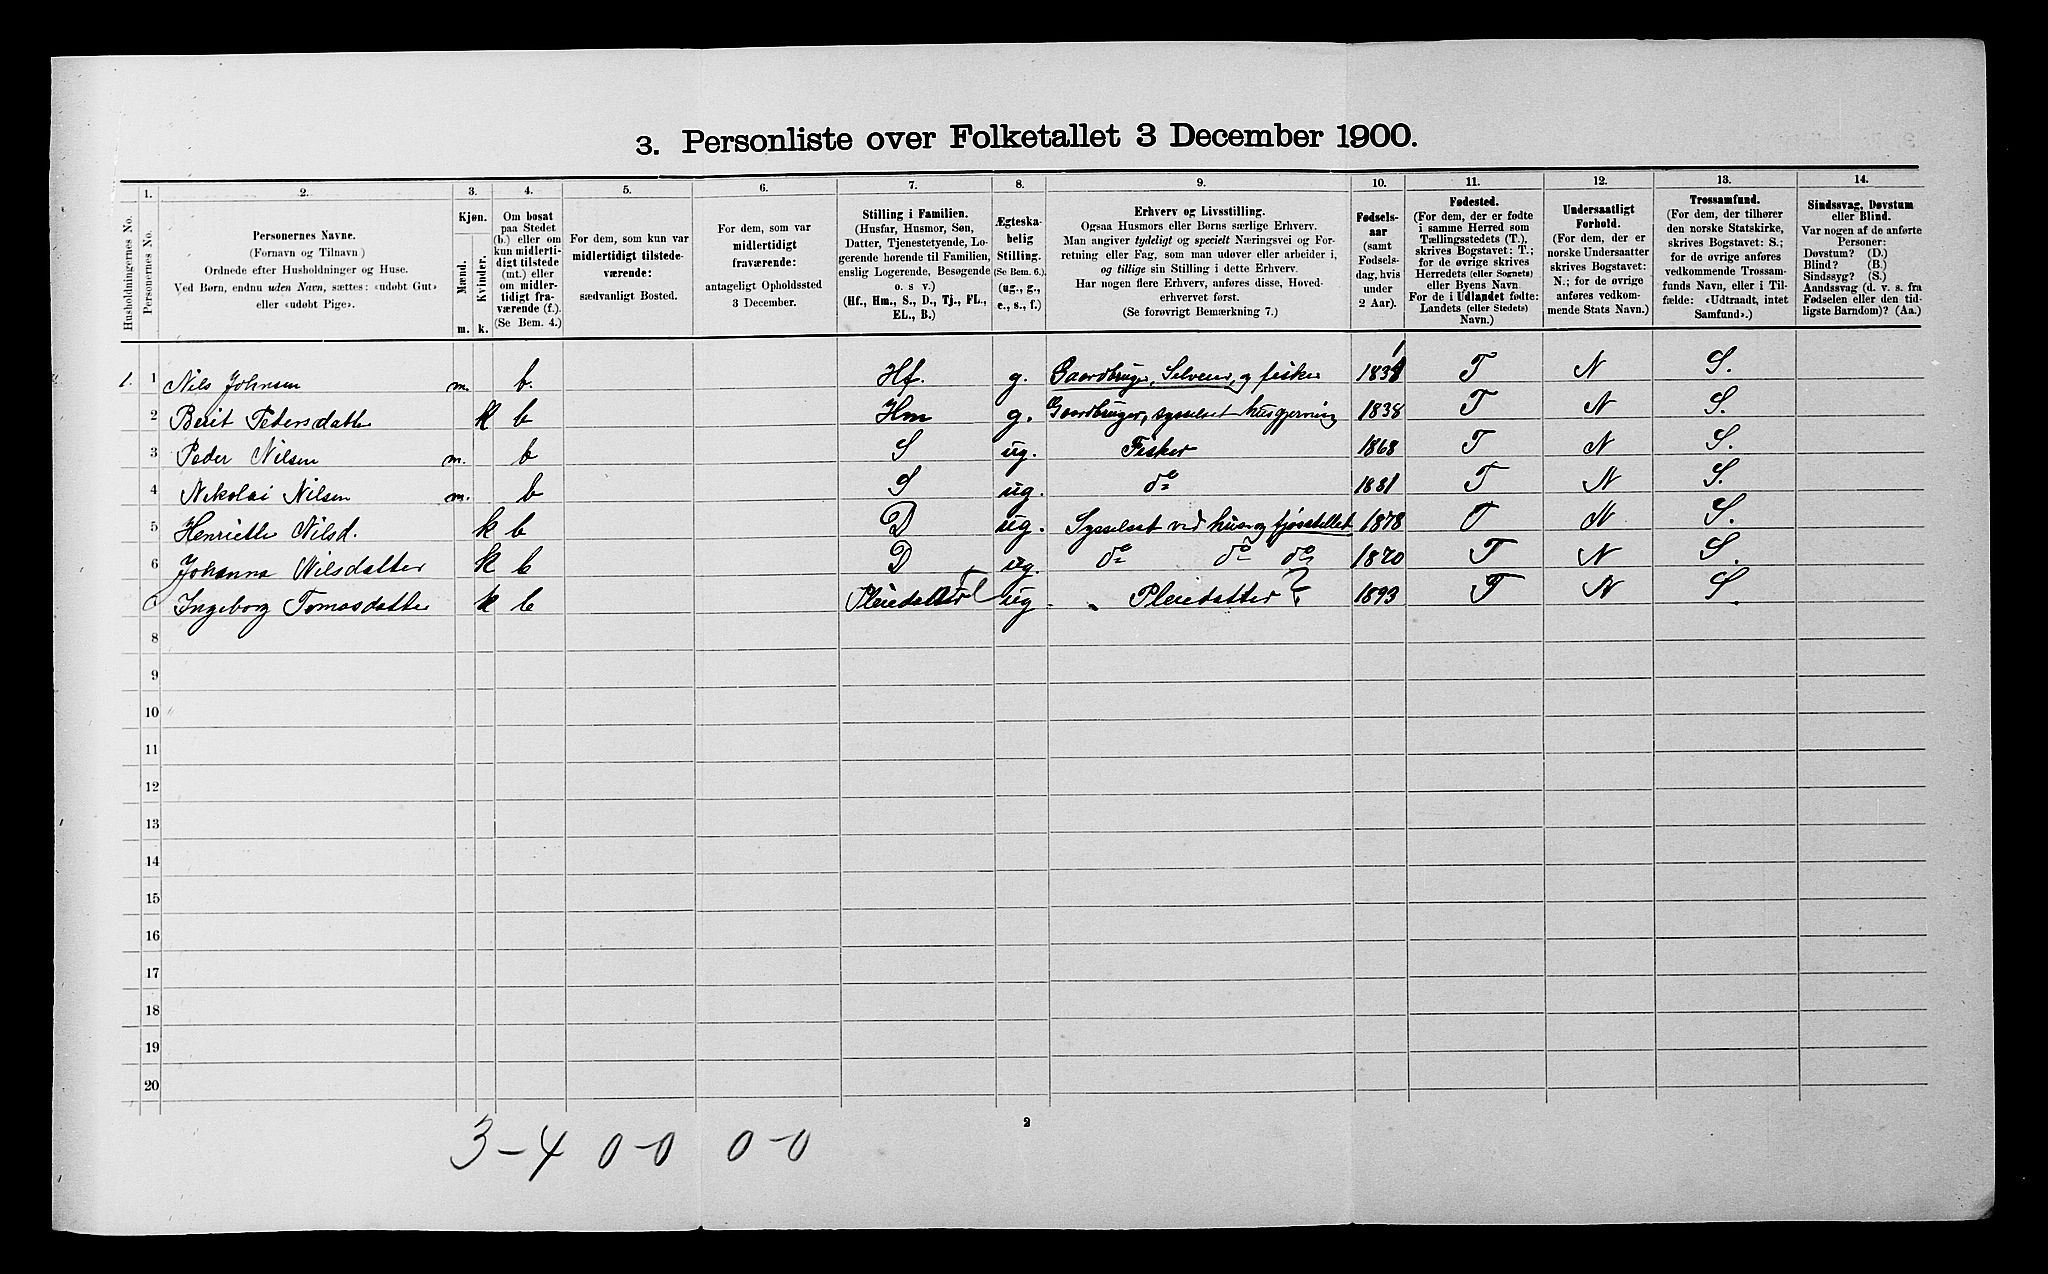 3. Personliste over Folketallet 3 December 1900.
1. 2. 3. 4. 5. 6. 7. 8. 9. 10. 11. 12. 13. 14.
Husholdningernes No.
Personernes No.
Personernes Navne.
(Fornavn og Tilnavn)
Ordnede efter Husholdninger og Huse.
Ved Børn, endnu uden Navn, sættes: «udøbt Gut»
eller «udøbt Pige».
Kjøn.
Mænd.
Kvinder.
m. k.
Om bosat
paa Stedet
(b.) eller om
kun midlerti-
digt tilstede
(mt.) eller
om midler-
tidigt fra-
værende (f.)
(Se Bem. 4.)
For dem, som kun var
midlertidigt tilstede-
værende:
sædvanligt Bosted.
For dem, som var
midlertidigt
fraværende:
antageligt Opholdssted
3 December.
Stilling i Familien.
(Husfar, Husmor, Søn,
Datter, Tjenestetyende, Lo-
gerende hørende til Familien,
enslig Logerende, Besøgende
o. s v.)
(Hf., Hm., S., D., Tj., FL.,
EL., B.)
Ægteska-
belig
Stilling.
(Se Bem. 6.)
(ug., g.,
e., s., f.)
Erhverv og Livsstilling.
Ogsaa Husmors eller Børns særlige Erhverv.
Man angiver tydeligt og specielt Næringsvei og For-
retning eller Fag, som man udøver eller arbeider i,
og tillige sin Stilling i dette Erhverv.
Har nogen flere Erhverv, anføres disse, Hoved-
erhvervet først.
(Se forøvrigt Bemærkning 7.)
Fødsels-
aar
(samt
Fødsels-
dag, hvis
under
2 Aar).
Fødested.
(For dem, der er fødte
i samme Herred som
Tællingsstedets (T.),
skrives Bogstavet: T.;
for de øvrige skrives
Herredets (eller Sognets)
eller Byens Navn.
For de i Udlandet fødte:
Landets (eller Stedets)
Navn.)
Undersaatligt
Forhold.
(For dem, der er
norske Undersaatter
skrives Bogstavet:
N.; for de øvrige
anføres vedkom-
mende Stats Navn.)
Trossamfund.
(For dem, der tilhører
den norske Statskirke,
skrives Bogstavet: S.;
for de øvrige anføres
vedkommende Trossam-
funds Navn, eller i Til-
fælde: «Udtraadt, intet
Samfund».)
Sindssvag, Døvstum
eller Blind.
Var nogen af de anførte
Personer:
Døvstum? (D.)
Blind? (B.)
Sindssyg? (S.)
Aandssvag (d. v. s. fra
Fødselen eller den tid-
ligste Barndom)? (Aa.)
1. 1 Nils Johnsen m. b. Hf. g. Gaardbruger, Selveier, og fisker 1831 T N S.
2 Berit Pedersdatter k b Hm g. Gaardbruger, sysselset husgjerning 1838 T N S.
3 Peder Nilsen m. b S ug. Fisker 1868 T N S.
4 Nikolai Nilsen m. b S ug. do 1881 T N S.
5 Henriette Nilsd. k b D ug. Sysselsat ved hus og fjøsstellet 1878 T N S.
6 Johanna Nilsdatter k b D ug. do do do 1870 T N S.
Ingeborg Tomasdatter k b Pleiedatter ug. Pleiedatter ? 1893 T N S.
8
9
10
11
12
13
14
15
16
17
18
19
20
2
3-4 0-0 0-0